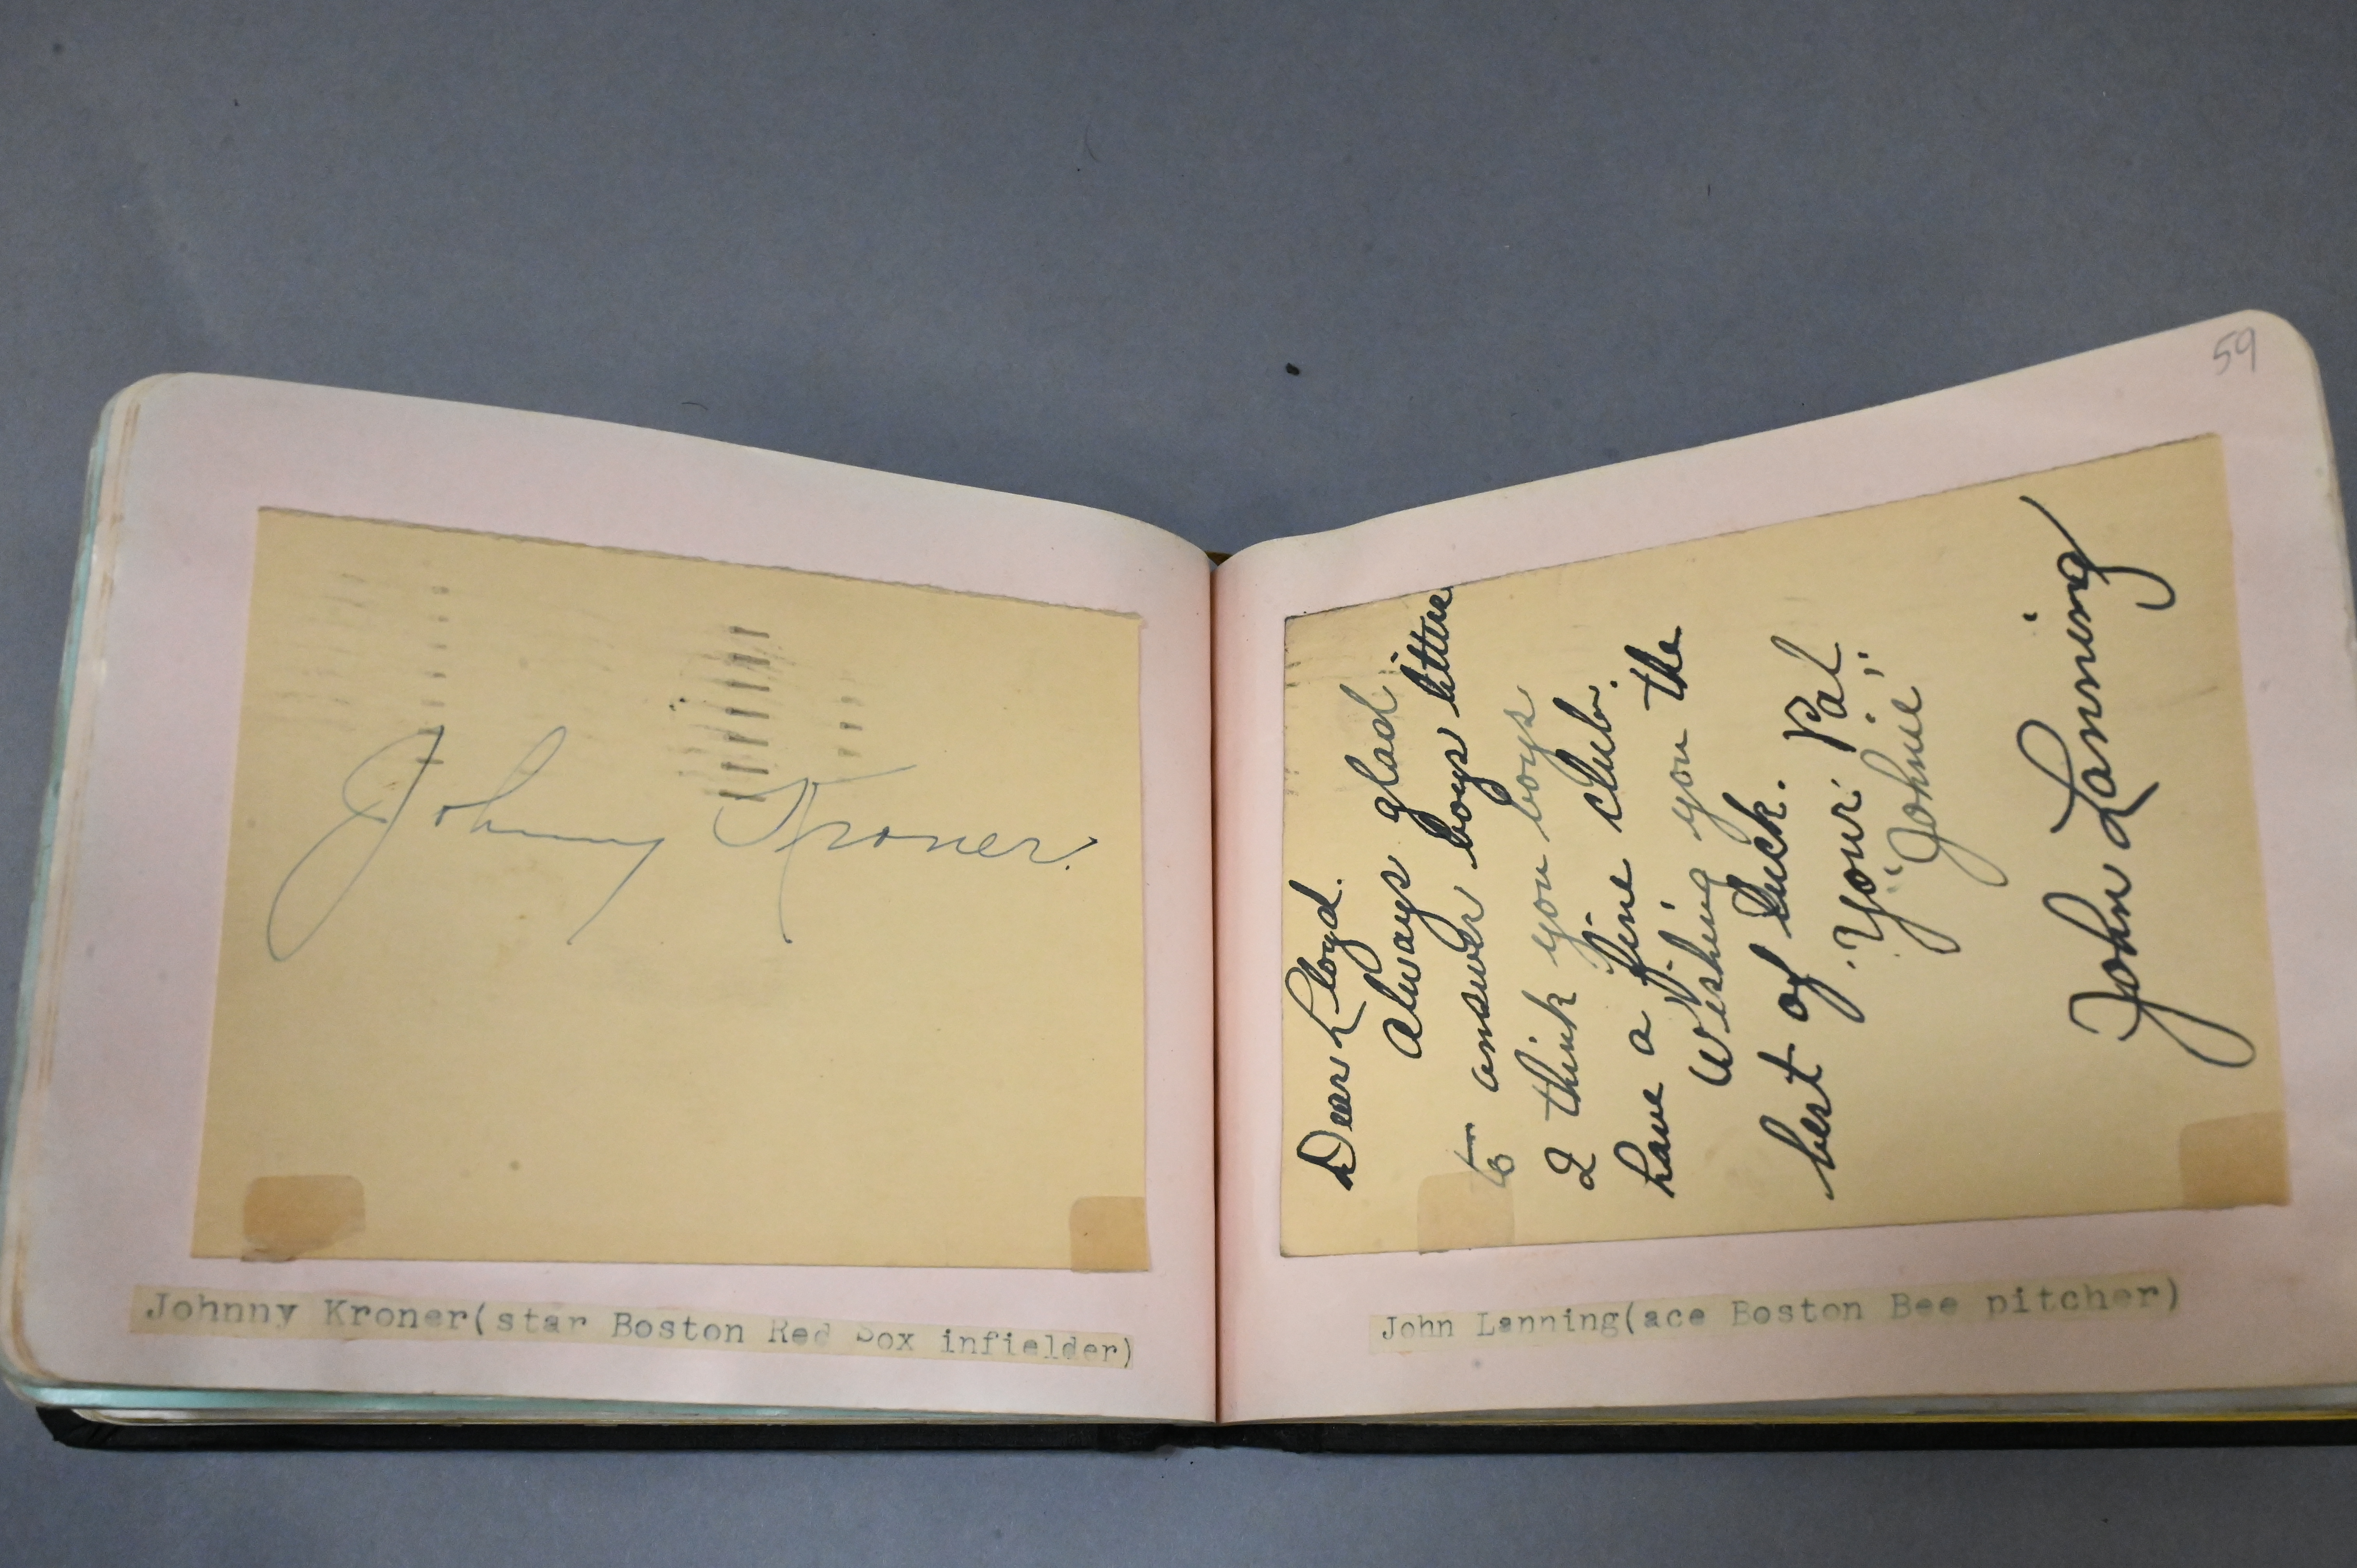 Johnny Kroner.
Johnny Kroner(star Boston Red Sox infielder)
59
Dear Lloyd.
Always glad
to answer boys letters
I think you boys
have a fine club.
Wishing you the
best of luck.
"Your Pal"
"Johnie"
John Lanning
John Lanning(ace Boston Bee pitcher)